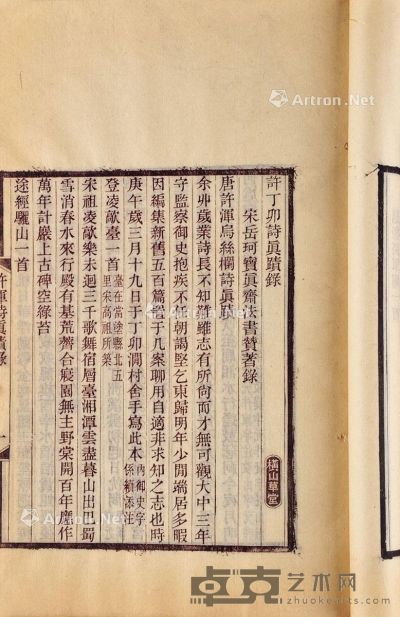 許丁卯詩眞蹟錄
宋岳珂寶眞齋法書贊著錄
唐許渾烏絲欄詩眞蹟
余丱歲業詩長不知難雖志有所尙而才無可觀大中三年
守監察御史抱疾不任朝謁堅乞東歸明年少閒端居多暇
因編集新舊五百篇置于几案聊用自適非求知之志也時
庚午歲三月十九日于丁卯澗村舍手寫此本內御史字係續添注
登凌歊臺一首臺在當塗縣北五里宋高祖所築
宋祖凌歊樂未迴三千歌舞宿層臺湘潭雲盡暮山出巴蜀
雪消春水來行殿有基荒薺合寢園無主野棠開百年應作
萬年計巖上古碑空綠苔
途經驪山一首
橫山草堂
許渾詩眞蹟錄
一
Artron.Net
Artron.Net
Artron.Net
卓克艺术网
zhuokearts.com